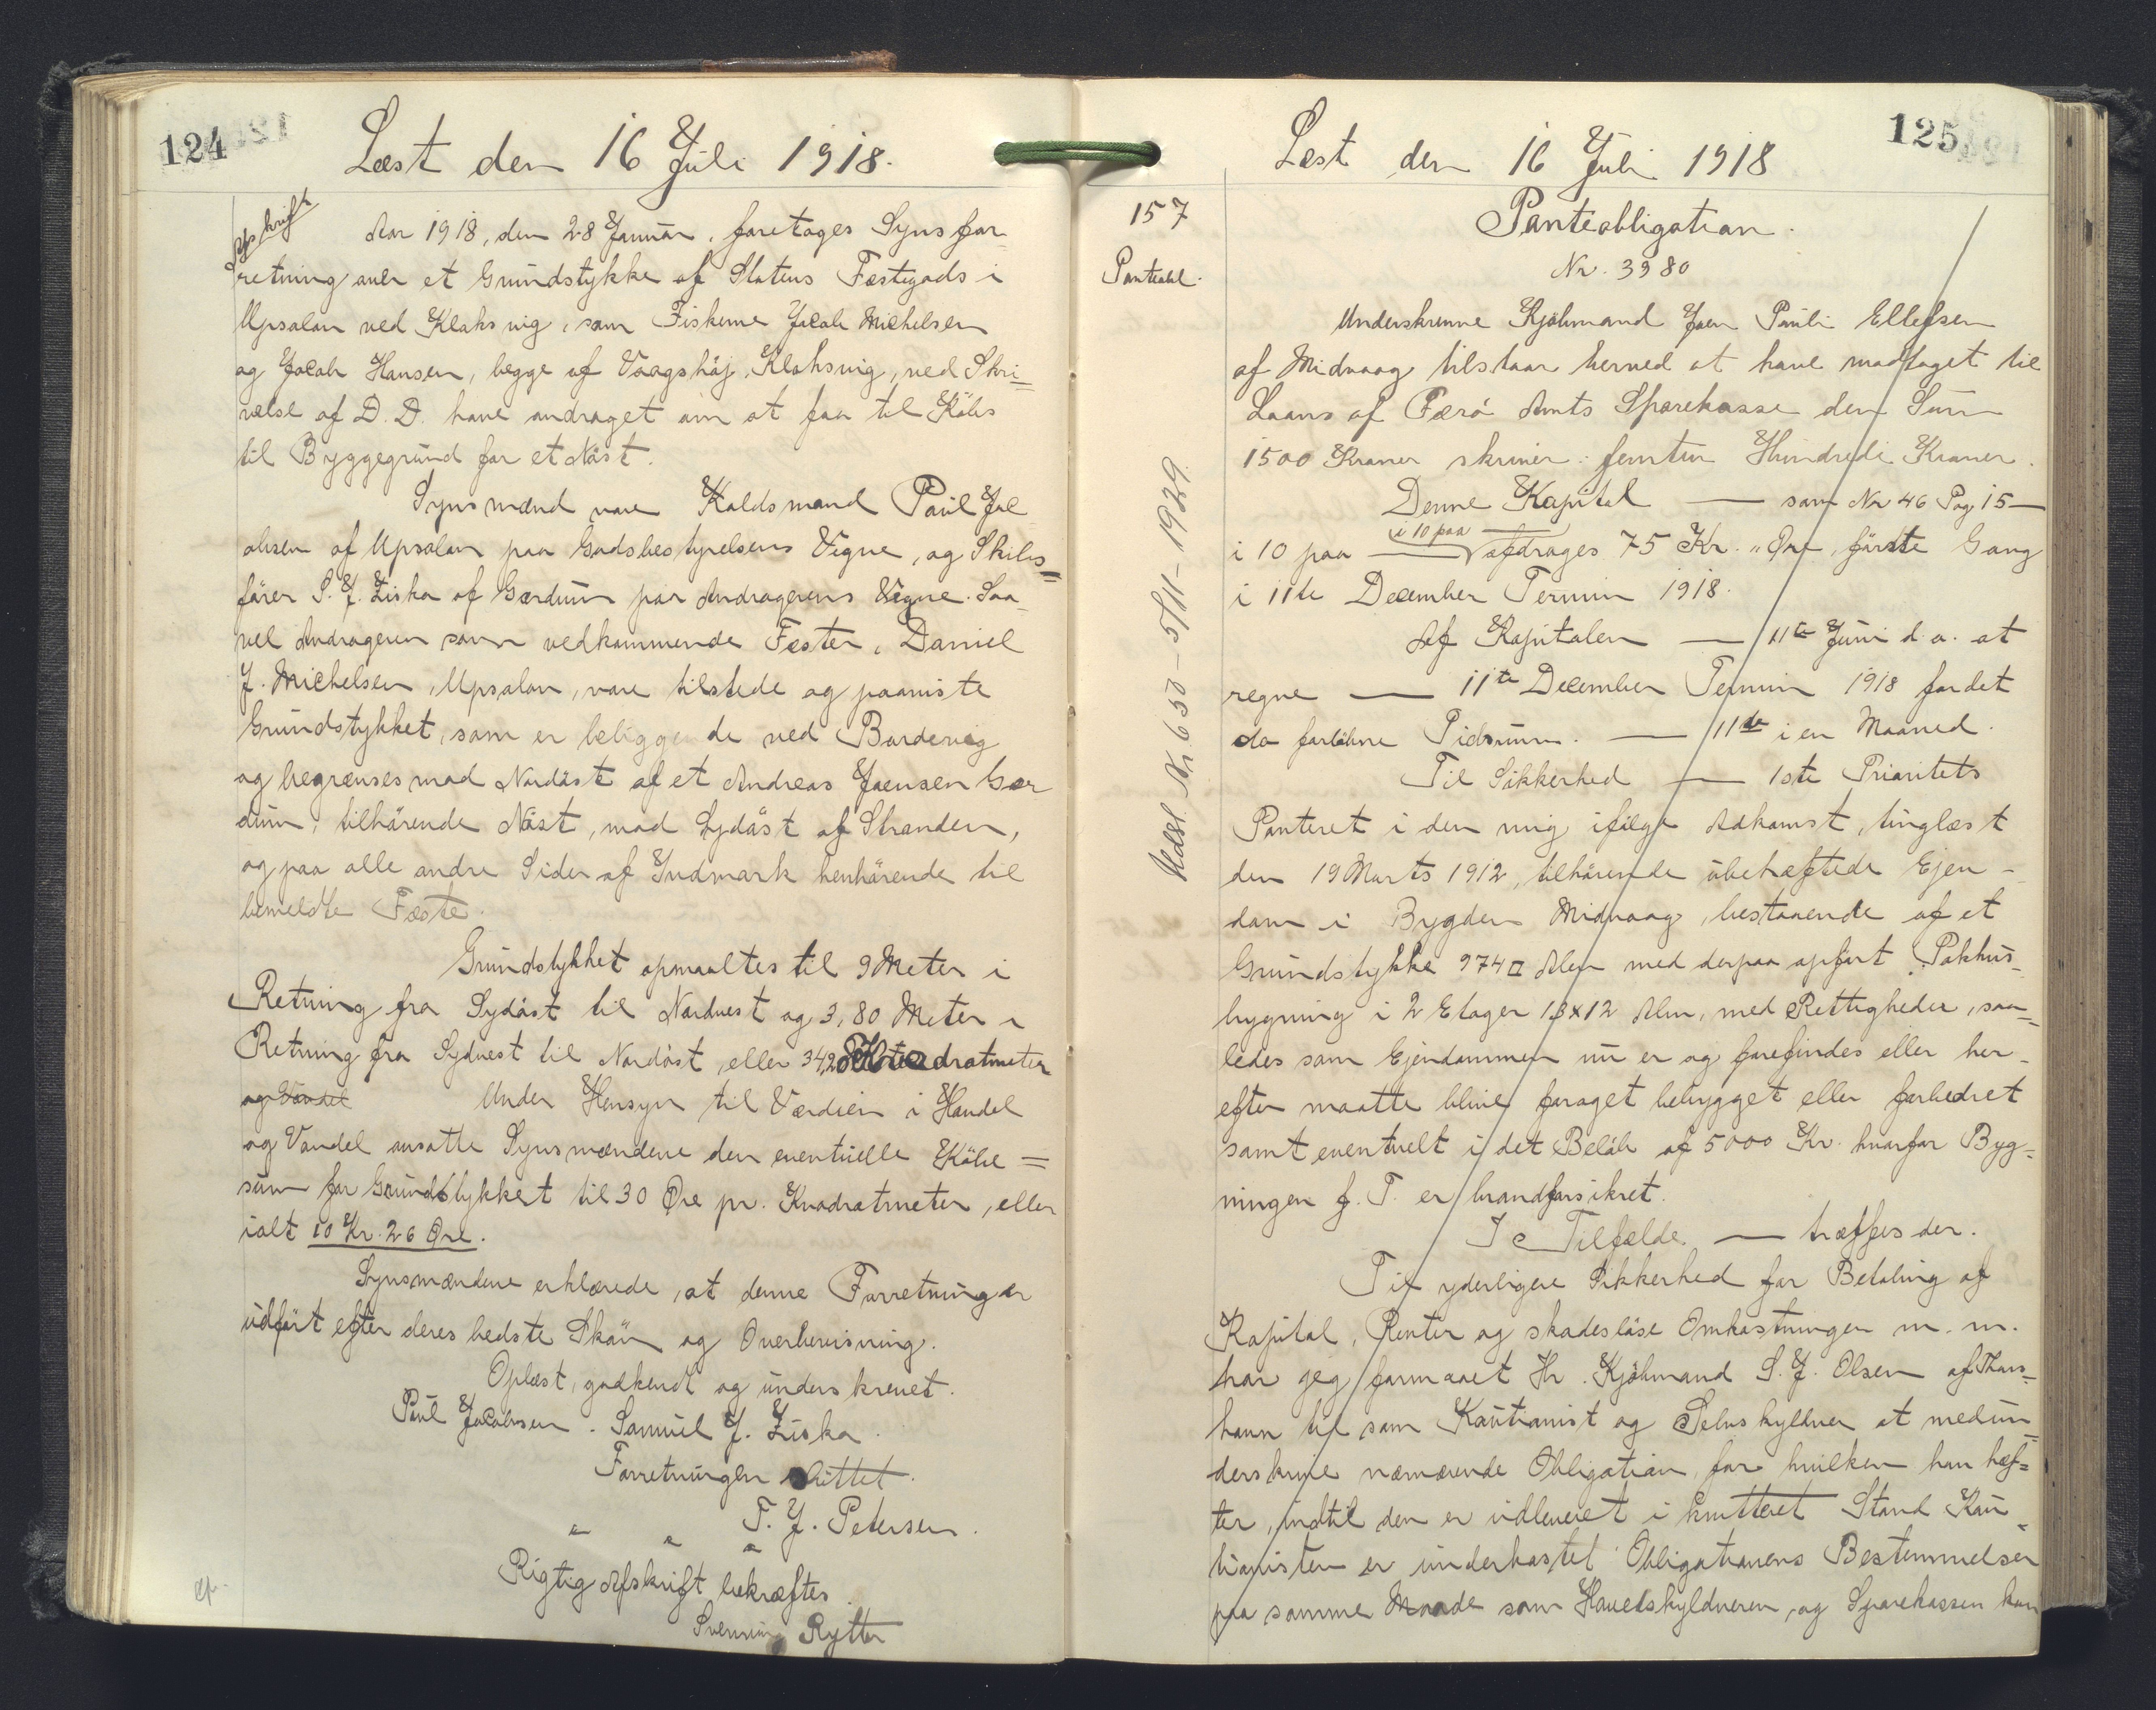 124
Læst den 16 Juli 1918.
Afskrift
Aar 1918, den 28 Januar, foretages Synsfor-
retning over et Grundstykke af Statens Fæstegods i
Upsalen ved Klaksvig, som Fiskerne Jacob Michelsen
og Jacob Hansen, begge af Vaagshøj, Klaksvig, ved Skri=
velse af D. D. have andraget om at faa til Købs
til Byggegrund for et Nøst.
Synsmænd vare Kaldsmand Paul Jac
obsen af Upsalen paa Godsbestyrelsens Vegne, og Skibs=
fører S. J. Ziska af Gærdum paa Andragerens Vegne. Saa
vel Andrageren som vedkommende Fæster, Daniel
J. Michelsen, Upsalen, vare tilstede og paaviste
Grundstykket, som er beliggende ved Bordevig
og begrænses mod Nordøst af et Andreas Joensen Gær
dum, tilhørende Nøst, mod Sydøst af Stranden,
og paa alle andre Sider af Indmark henhørende til
bemeldte Fæste.
Grundstykket opmaaltes til 9 Meter i
Retning fra Sydøst til Nordvest og 3,80 Meter i
Retning fra Sydvest til Nordøst, eller 34,2 Kvadratmeter
og Vandel Under Hensyn til Værdien i Handel
og Vandel ansatte Synsmændene den eventuelle Købe=
sum for Grundstykket til 30 Øre pr. Kvadratmeter, eller
ialt 10 Kr. 26 Øre.
Synsmændene erklærede, at denne Forretning er
udført efter deres bedste Skøn og Overbevisning.
Oplæst, godkendt og underskrevet.
Paul Jacobsen. Samuel J. Ziska.
Forretningen sluttet.
T. J. Petersen.
" " "
Rigtig Afskrift bekræftes
Svenning Rytter
125
Læst den 16 Juli 1918
157
Panteobl.
Panteobligation.
Nr. 3980
Underskrevne Kjøbmand Joen Pauli Ellefsen
af Midvaag tilstaar herved at have modtaget til
Laans af Færø Amts Sparekasse den Sum
1500 Kroner skriver: femten Hundrede Kroner.
Denne Kapital — som Nr 46 Pag 15 —
i 10 paa —
i 10 paa — afdrages 75 Kr. " Øre, første Gang
i 11te December Termin 1918.
Af Kapitalen — 11te Juni d. a. at
regne — 11te December Termin 1918 for det
da forløbne Tidsrum. — 11te i en Maaned.
Til Sikkerhed — 1ste Prioritets
Panteret i den mig ifølge Adkomst, tinglæst
den 19 Marts 1912, tilhørende ubehæftede Ejen-
dom i Bygden Midvaag, bestaaende af et
Grundstykke 974 □ Alen med derpaa opført Pakhus-
bygning i 2 Etager 18x12 Alen, med Rettigheder, saa=
ledes som Ejendommen nu er og forefindes eller her-
efter maatte blive foraget bebygget eller forbedret
samt eventuelt i det Beløb af 5000 Kr. hvorfor Byg=
ningen f. T. er brandforsikret.
I Tilfælde — træffes der.
Til yderligere Sikkerhed for Betaling af
Kapital, Renter og skadesløse Omkostninger m. m.
har jeg formaaet Hr. Kjøbmand S. J. Olsen af Thors=
havn til som Kautionist og Selvskyldner at medun=
derskrive nærværende Obligation, for hvilken han hæf=
ter, indtil den er udleveret i kvitteret Stand Kau=
tionisten er underkastet Obligationens Bestemmelser
paa samme Maade som Hovedskyldneren, og Sparekassen kan
Aflæst Nr. 653 - 5/11 - 1929